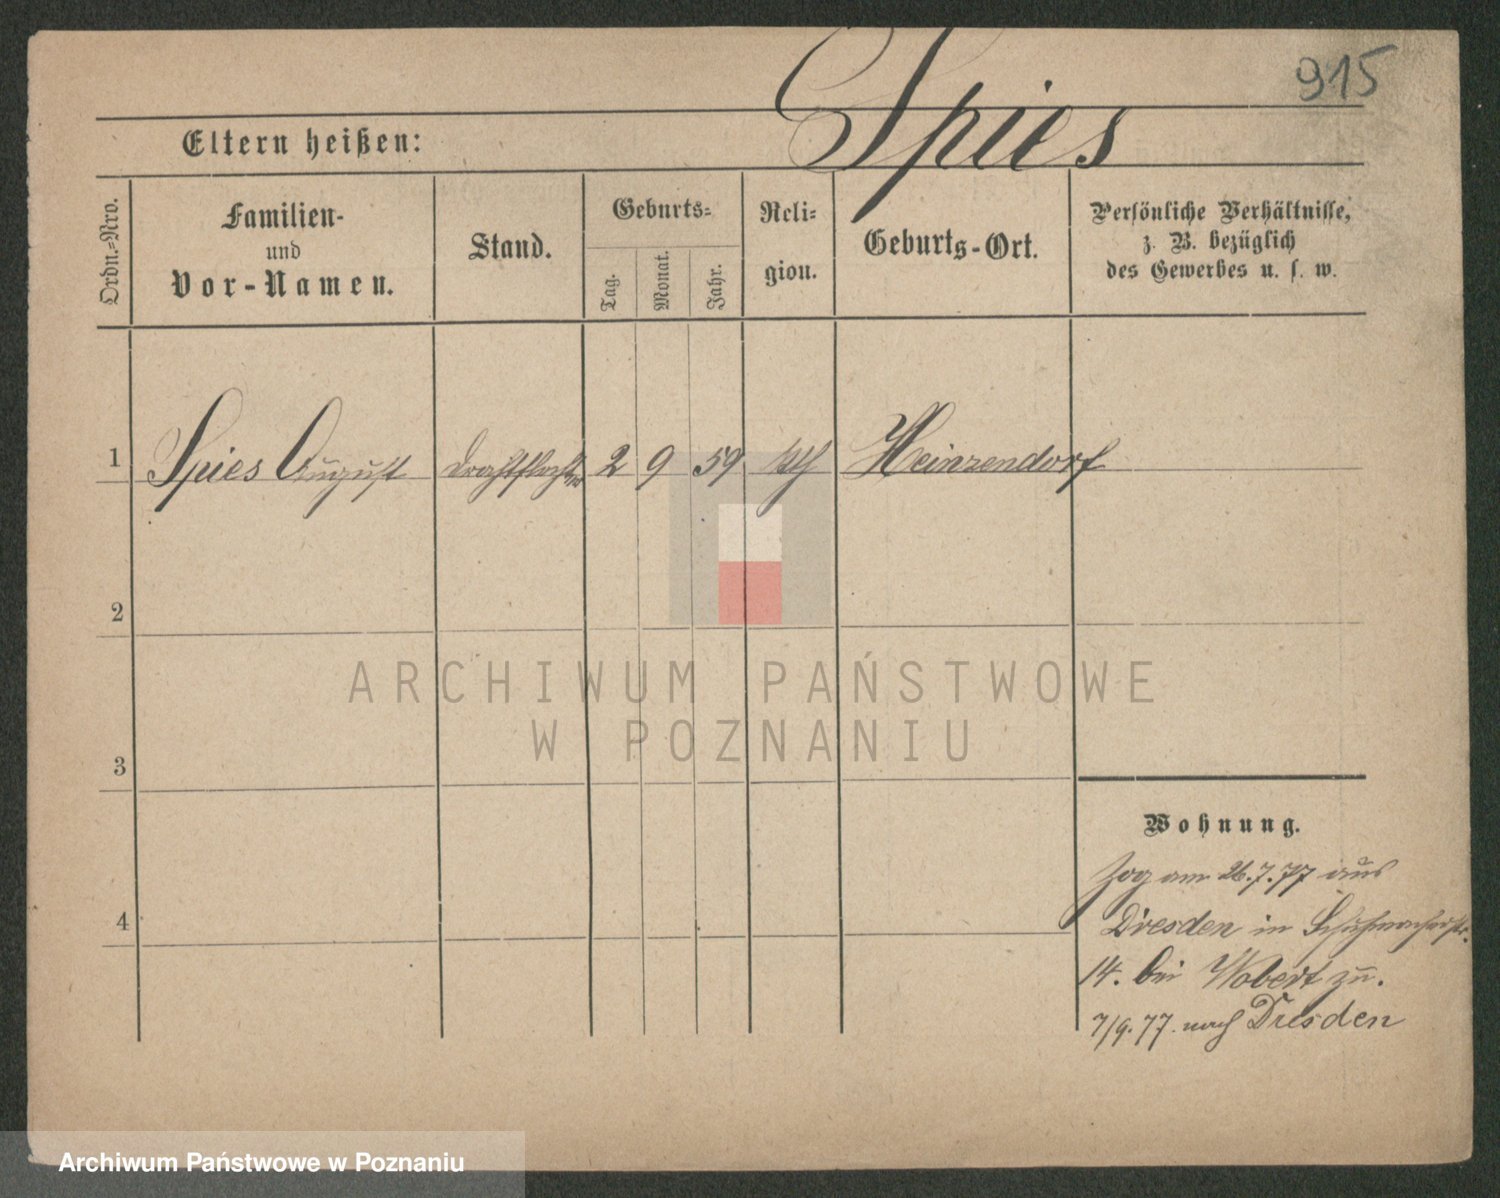 915
Spies
Eltern heißen:
Ordn.-Nro.
Familien-
und
Vor-Namen.
Stand.
Geburts-
Tag.
Monat.
Jahr.
Reli-
gion.
Geburts-Ort.
Persönliche Verhältnisse,
z. B. bezüglich
des Gewerbes u. s. w.
1 Spies August Drahtflechter 2 9 59 kth Heinzendorf
2
3
4
Wohnung.
Zog am 26.7.77 aus
Dresden in Schuhmacherstr.
14. bei Wobert zu.
7/9.77. nach Dresden
ARCHIWUM PAŃSTWOWE
W POZNANIU
Archiwum Państwowe w Poznaniu